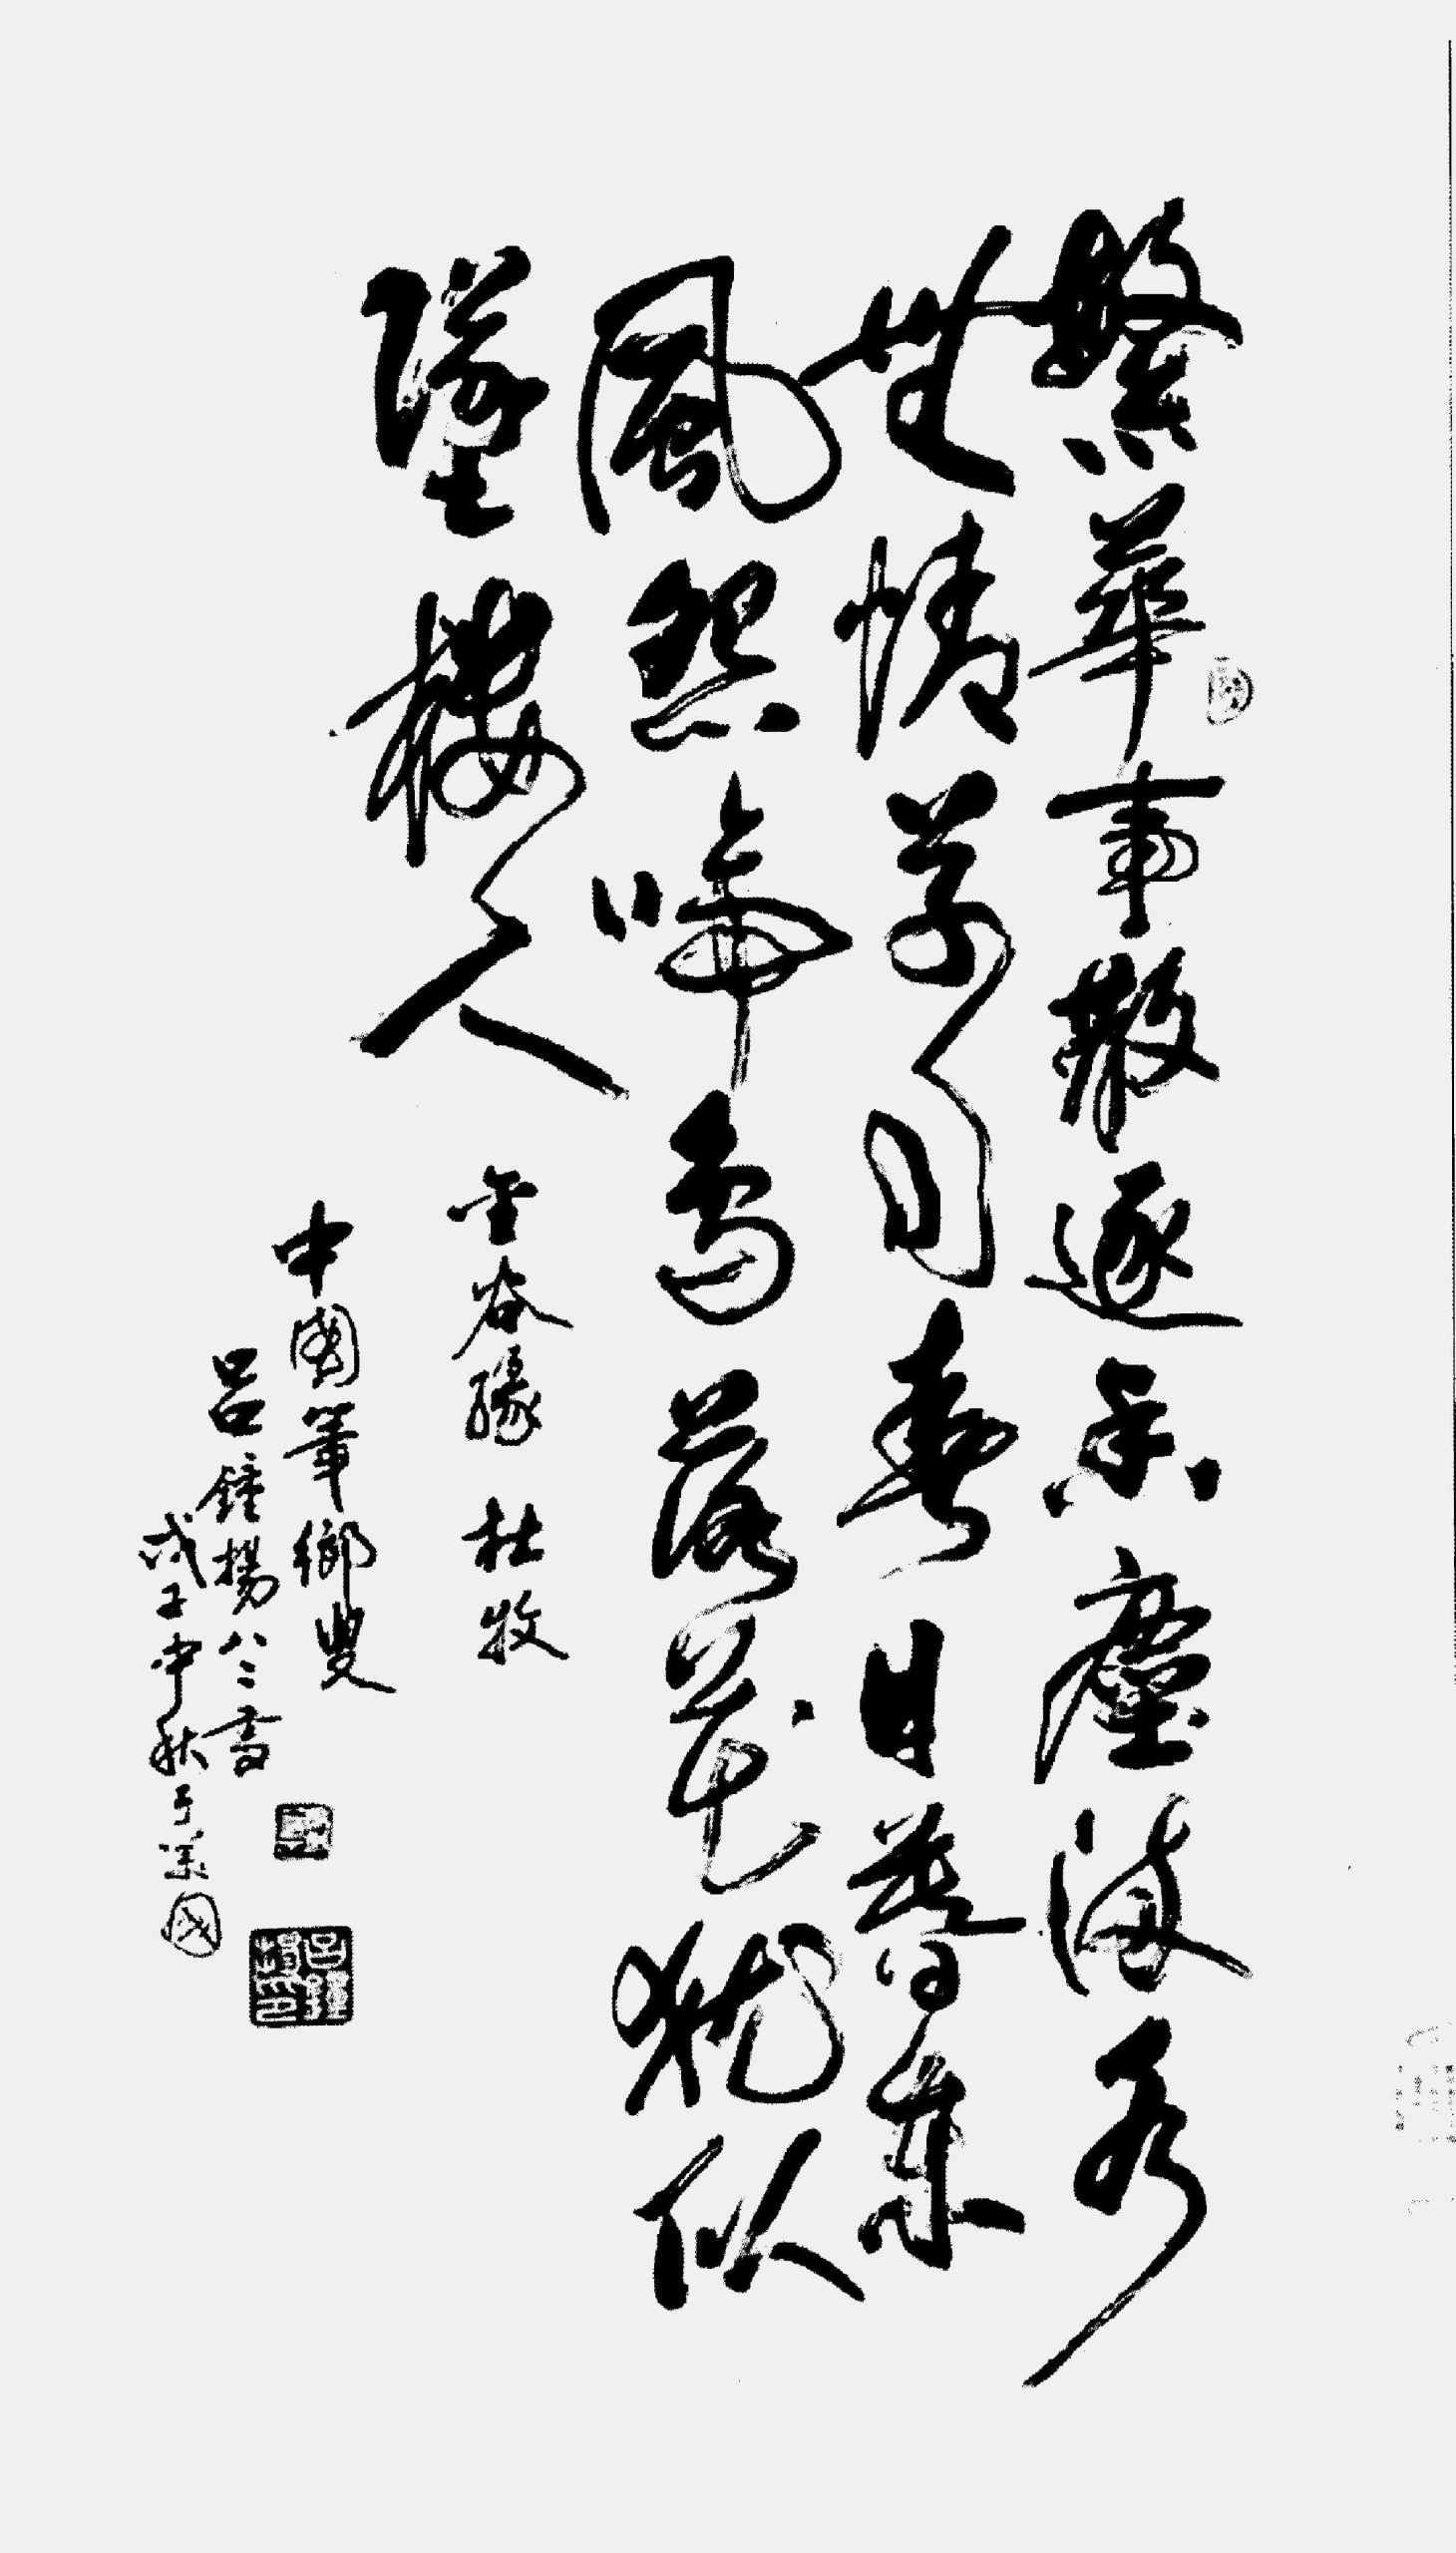 繁華事散逐香塵流水
無情草自春日暮東
風怨啼鳥落花猶似
墜樓人
金谷緣 杜牧
中國筆鄉叟
呂鐘揚八二書
戊子中秋于美國
呂鐘揚印